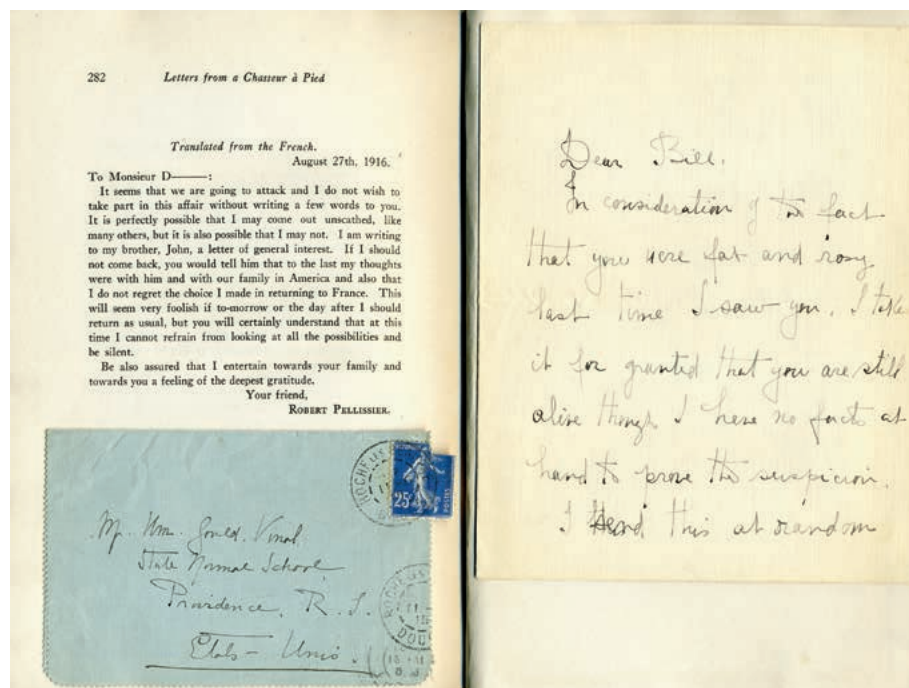 282 Letters from a Chasseur à Pied
Translated from the French.
August 27th, 1916.
To Monsieur D———:
It seems that we are going to attack and I do not wish to
take part in this affair without writing a few words to you.
It is perfectly possible that I may come out unscathed, like
many others, but it is also possible that I may not. I am writing
to my brother, John, a letter of general interest. If I should
not come back, you would tell him that to the last my thoughts
were with him and with our family in America and also that
I do not regret the choice I made in returning to France. This
will seem very foolish if to-morrow or the day after I should
return as usual, but you will certainly understand that at this
time I cannot refrain from looking at all the possibilities and
be silent.
Be also assured that I entertain towards your family and
towards you a feeling of the deepest gratitude.
Your friend,
ROBERT PELLISSIER.
25c
POSTES
Mr. Wm. Gould. Vinal
State Normal School
Providence, R. I.
Etats-Unis.
Dear Bill.
In consideration of the fact
that you were fat and rosy
last time I saw you, I take
it for granted that you are still
alive though I have no facts at
hand to prove the suspicion.
I send this at random